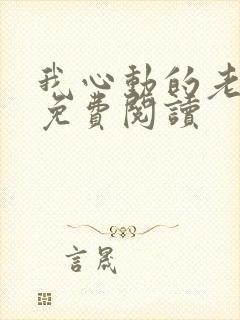 我心動的老
免費閱讀
言晟